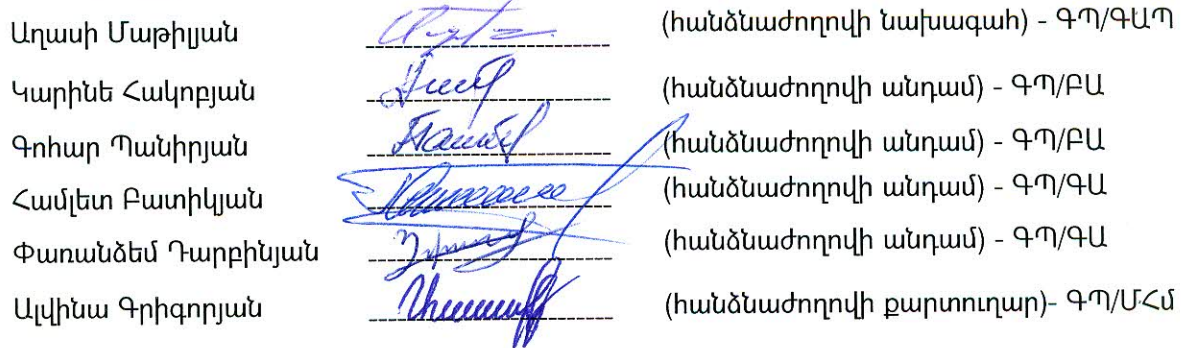 Աղասի Մաթիլյան (հանձնաժողովի նախագահ) - ԳՊ/ԳԱՊ
Կարինե Հակոբյան (հանձնաժողովի անդամ) - ԳՊ/ԲԱ
Գոհար Պանիրյան (հանձնաժողովի անդամ) - ԳՊ/ԲԱ
Համլետ Բատիկյան (հանձնաժողովի անդամ) - ԳՊ/ԳԱ
Փառանձեմ Դարբինյան (հանձնաժողովի անդամ) - ԳՊ/ԳԱ
Ալվինա Գրիգորյան (հանձնաժողովի քարտուղար)- ԳՊ/ՄՀմ